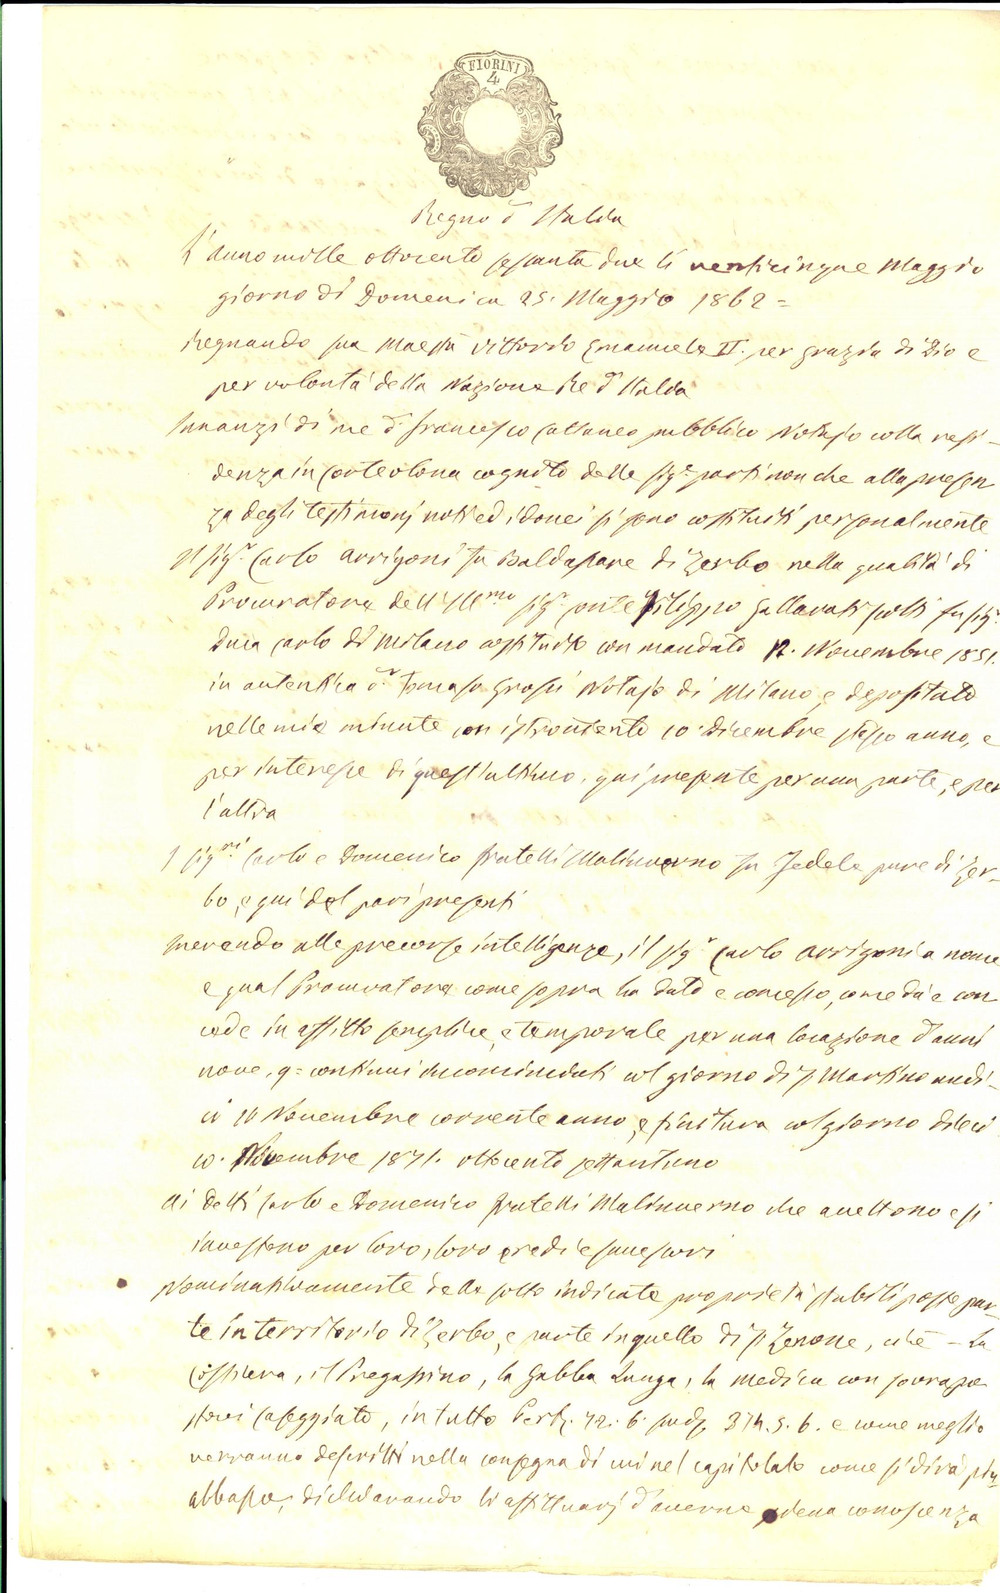 FIORINI
4
Regno d'Italia
L'anno mille ottocento sessanta due li venticinque Maggio
giorno di Domenica 25. Maggio 1862 =
Regnando sua Maestà Vittorio Emanuele II. per grazia di Dio e
per volontà della Nazione Re d'Italia
Innanzi di me Dr. Francesco Cattaneo pubblico Notajo colla resi-
denza in Corteolona cognito delle sigr. parti non che alla presen
za degli testimonj noti ed idonei si sono costituiti personalmente
Il sigr. Carlo Arrigoni fu Baldassare di Zerbo nella qualità di
Procuratore dell'Illmo sigr. Conte Filippo Gallarati Scotti fu sigr.
Duca Carlo di Milano costituito con mandato 12. Novembre 1851.
in autentica Dr. Tomaso Grossi Notajo di Milano, e depositato
nelle mie minute con istromento 10. Dicembre stesso anno, e
per interesse di quest'ultimo, qui presente per una parte, e per
l'altra
I sigri. Carlo e Domenico fratelli Malinverno fu Fedele pure di Zer-
bo, e qui del pari presenti
Inerendo alle precorse intelligenze, il sigr. Carlo Arrigoni a nome
e qual Procuratore come sopra ha dato e concesso, come dà e con
cede in affitto semplice, e temporale per una locazione d'anni
nove, 9= continui incominciati col giorno di S. Martino undi-
ci 11 Novembre corrente anno, e finitura col giorno dieci
10. Novembre 1871. ottocento settantuno
Ai detti Carlo e Domenico fratelli Malinverno che accettano e si
investono per loro, loro eredi e successori
Nominativamente delle sotto indicate proprietà stabili poste par-
te in territorio di Zerbo, e parte in quello di S. Zenone, cioè - La
Costiera, il Pregassino, la Gabba Lunga, la Medica con sovrapo
stovi caseggiato, in tutto Pert. 72. 6. sud. 374. 5. 6. e come meglio
verranno descritti nella consegna di cui nel capitolato come si dirà più
abbasso, dichiarando li affittuarj d'averne piena conoscenza